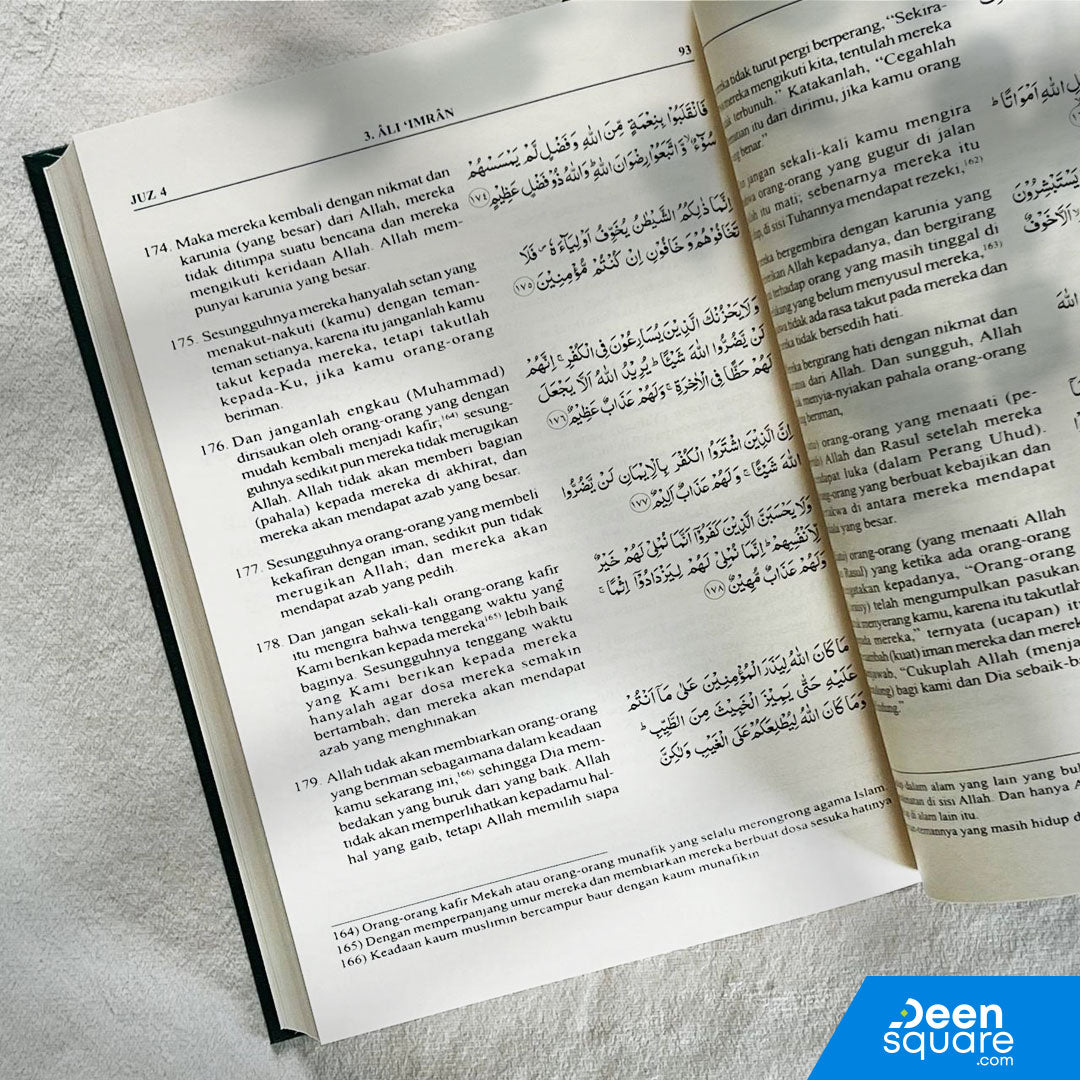 JUZ 4
3. ÂLI ‘IMRÂN
93
174. Maka mereka kembali dengan nikmat dan
karunia (yang besar) dari Allah, mereka
tidak ditimpa suatu bencana dan mereka
mengikuti keridaan Allah. Allah mem-
punyai karunia yang besar.
175. Sesungguhnya mereka hanyalah setan yang
menakut-nakuti (kamu) dengan teman-
teman setianya, karena itu janganlah kamu
takut kepada mereka, tetapi takutlah
kepada-Ku, jika kamu orang-orang
beriman.
176. Dan janganlah engkau (Muhammad)
dirisaukan oleh orang-orang yang dengan
mudah kembali menjadi kafir,¹⁶⁴⁾ sesung-
guhnya sedikit pun mereka tidak merugikan
Allah. Allah tidak akan memberi bagian
(pahala) kepada mereka di akhirat, dan
mereka akan mendapat azab yang besar.
177. Sesungguhnya orang-orang yang membeli
kekafiran dengan iman, sedikit pun tidak
merugikan Allah, dan mereka akan
mendapat azab yang pedih.
178. Dan jangan sekali-kali orang-orang kafir
itu mengira bahwa tenggang waktu yang
Kami berikan kepada mereka¹⁶⁵⁾ lebih baik
baginya. Sesungguhnya tenggang waktu
yang Kami berikan kepada mereka
hanyalah agar dosa mereka semakin
bertambah, dan mereka akan mendapat
azab yang menghinakan
179. Allah tidak akan membiarkan orang-orang
yang beriman sebagaimana dalam keadaan
kamu sekarang ini,¹⁶⁶⁾ sehingga Dia mem-
bedakan yang buruk dari yang baik. Allah
tidak akan memperlihatkan kepadamu hal-
hal yang gaib, tetapi Allah memilih siapa
فَانْقَلَبُوْا بِنِعْمَةٍ مِّنَ اللّٰهِ وَفَضْلٍ لَّمْ يَمْسَسْهُمْ
سُوْۤءٌۙ وَّاتَّبَعُوْا رِضْوَانَ اللّٰهِ ۗ وَاللّٰهُ ذُوْ فَضْلٍ عَظِيْمٍ ١٧٤
اِنَّمَا ذٰلِكُمُ الشَّيْطٰنُ يُخَوِّفُ اَوْلِيَاۤءَهٗۖ فَلَا
تَخَافُوْهُمْ وَخَافُوْنِ اِنْ كُنْتُمْ مُّؤْمِنِيْنَ ١٧٥
وَلَا يَحْزُنْكَ الَّذِيْنَ يُسَارِعُوْنَ فِى الْكُفْرِۚ اِنَّهُمْ
لَنْ يَّضُرُّوا اللّٰهَ شَيْـًٔا ۗ يُرِيْدُ اللّٰهُ اَلَّا يَجْعَلَ
لَهُمْ حَظًّا فِى الْاٰخِرَةِ ۚ وَلَهُمْ عَذَابٌ عَظِيْمٌ ١٧٦
اِنَّ الَّذِيْنَ اشْتَرَوُا الْكُفْرَ بِالْاِيْمَانِ لَنْ يَّضُرُّوا
اللّٰهَ شَيْـًٔاۚ وَلَهُمْ عَذَابٌ اَلِيْمٌ ١٧٧
وَلَا يَحْسَبَنَّ الَّذِيْنَ كَفَرُوْٓا اَنَّمَا نُمْلِيْ لَهُمْ خَيْرٌ
لِّاَنْفُسِهِمْ ۗ اِنَّمَا نُمْلِيْ لَهُمْ لِيَزْدَادُوْٓا اِثْمًا ۚ
وَلَهُمْ عَذَابٌ مُّهِيْنٌ ١٧٨
مَا كَانَ اللّٰهُ لِيَذَرَ الْمُؤْمِنِيْنَ عَلٰى مَآ اَنْتُمْ
عَلَيْهِ حَتّٰى يَمِيْزَ الْخَبِيْثَ مِنَ الطَّيِّبِ ۗ
وَمَا كَانَ اللّٰهُ لِيُطْلِعَكُمْ عَلَى الْغَيْبِ وَلٰكِنَّ
164) Orang-orang kafir Mekah atau orang-orang munafik yang selalu merongrong agama Islam
165) Dengan memperpanjang umur mereka dan membiarkan mereka berbuat dosa sesuka hatinya
166) Keadaan kaum muslimin bercampur baur dengan kaum munafikin
tidak turut pergi berperang, “Sekira-
mereka mengikuti kita, tentulah mereka
terbunuh.” Katakanlah, “Cegahlah
itu dari dirimu, jika kamu orang
benar.”
jangan sekali-kali kamu mengira
orang-orang yang gugur di jalan
itu mati; sebenarnya mereka itu
di sisi Tuhannya mendapat rezeki,¹⁶²⁾
bergembira dengan karunia yang
Allah kepadanya, dan bergirang
terhadap orang yang masih tinggal di
yang belum menyusul mereka,¹⁶³⁾
tidak ada rasa takut pada mereka dan
tidak bersedih hati.
bergirang hati dengan nikmat dan
dari Allah. Dan sungguh, Allah
menyia-nyiakan pahala orang-orang
beriman,
orang-orang yang menaati (pe-
Allah dan Rasul setelah mereka
luka (dalam Perang Uhud).
orang yang berbuat kebajikan dan
di antara mereka mendapat
yang besar.
orang-orang (yang menaati Allah
Rasul) yang ketika ada orang-orang
kepadanya, “Orang-orang
telah mengumpulkan pasukan
menyerang kamu, karena itu takutlah
mereka,” ternyata (ucapan) it
(kuat) iman mereka dan merek
“Cukuplah Allah (menja
bagi kami dan Dia sebaik-ba
dalam alam yang lain yang buk
di sisi Allah. Dan hanya A
di alam lain itu.
yang masih hidup d
Deen
square
.com